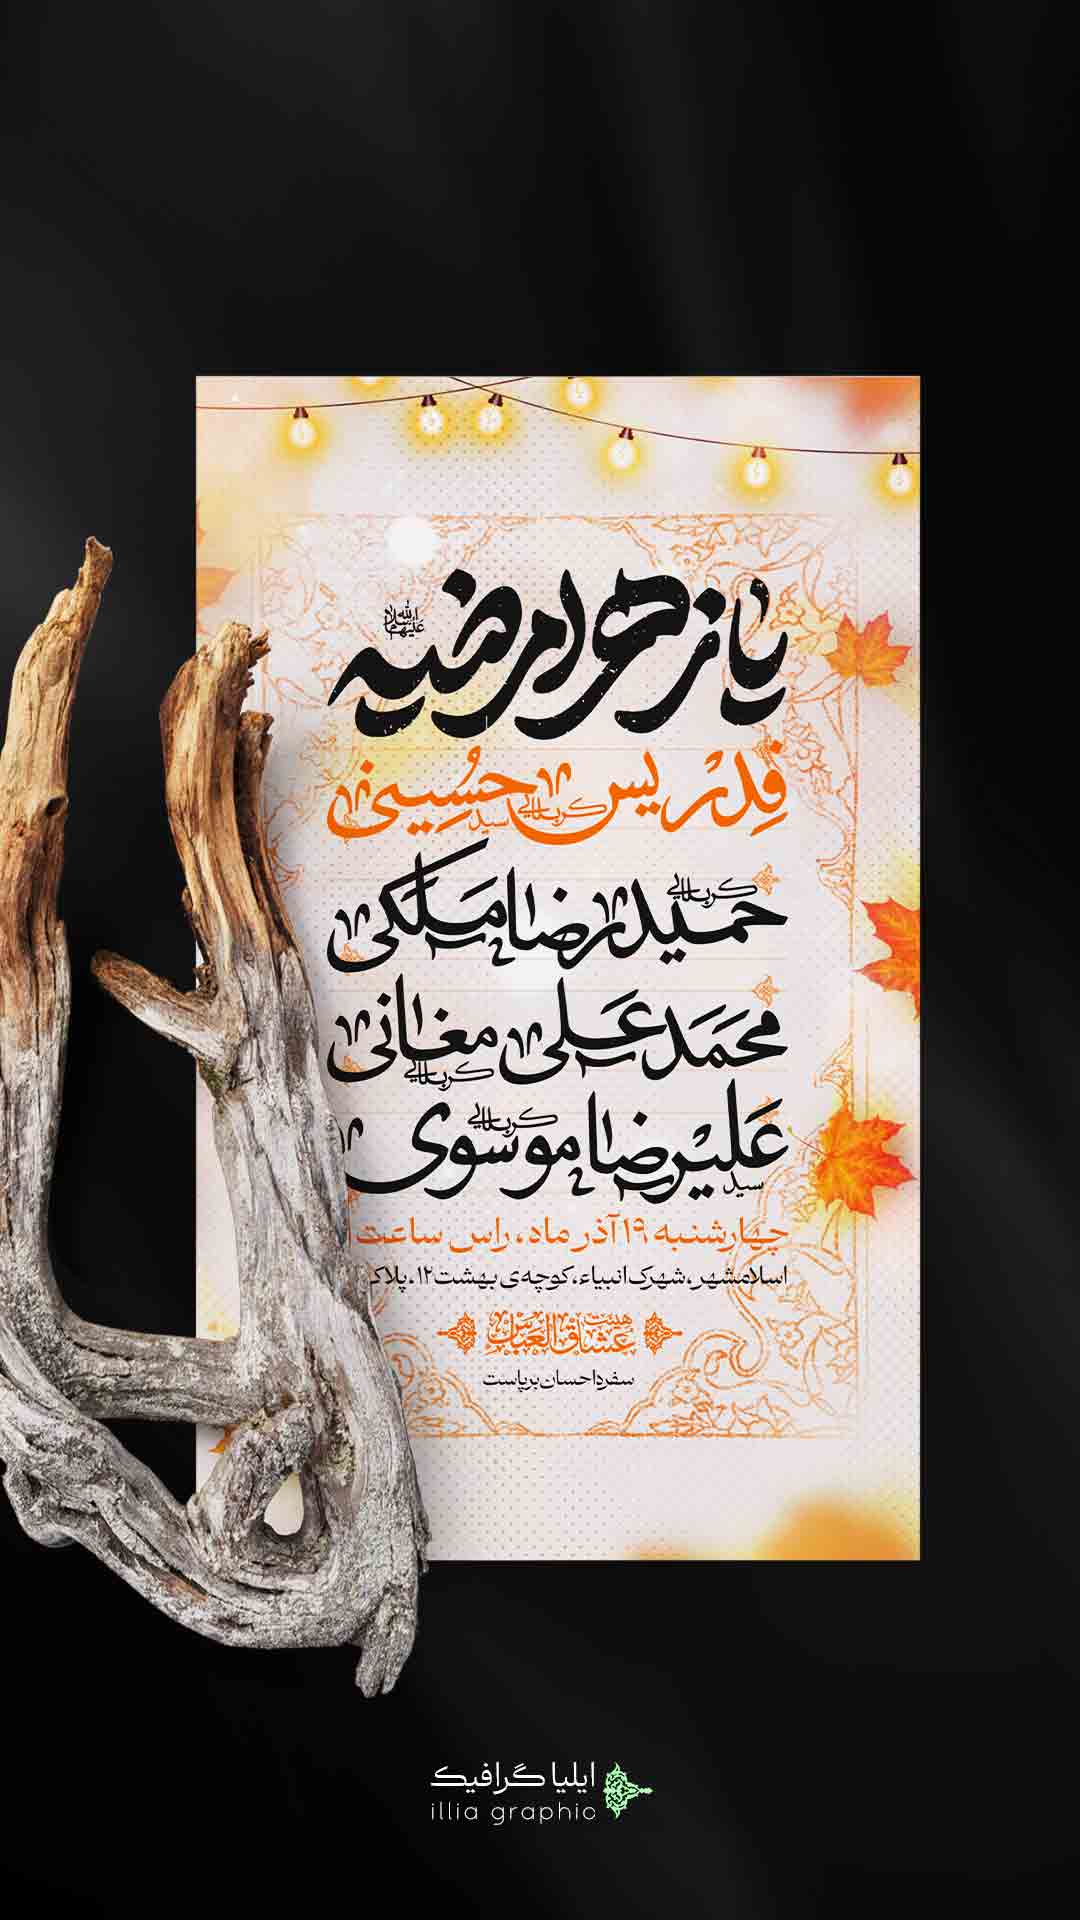 یا زهرا مرضیه
فدریس کربلایی سید حسینی
کربلایی حمیدرضا ملکی
محمدعلی مغانی کربلایی
سید علیرضا کربلایی موسوی
چهارشنبه ۱۹ آذر ماه، راس ساعت
اسلامشهر، شهرک انبیاء، کوچه‌ی بهشت ۱۲، پلاک
هیئت عشاق العباس
سفره احسان برپاست
ایلیا گرافیک
illia graphic